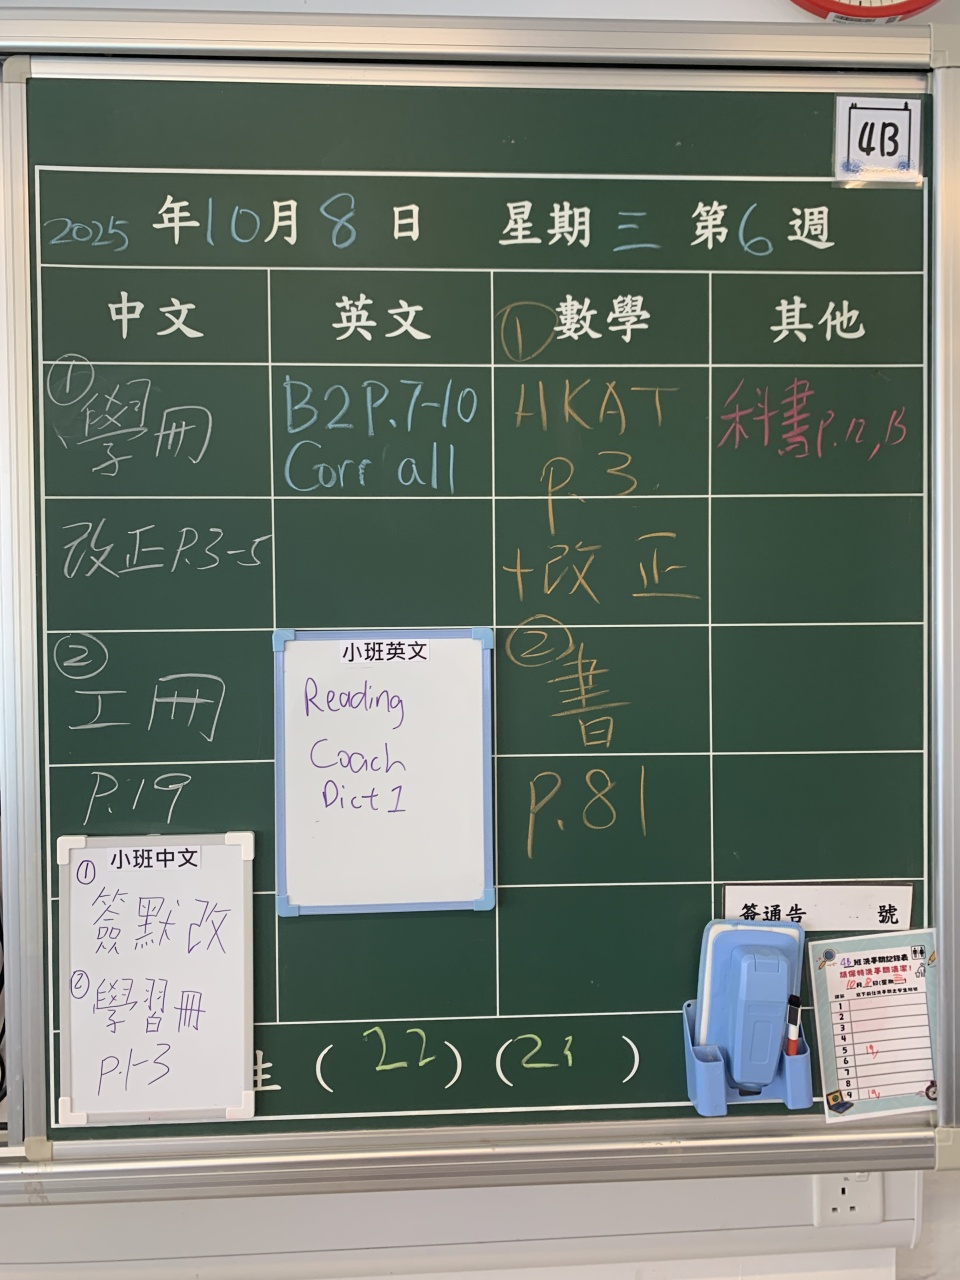 4B
2025 年 10 月 8 日 星期 三 第 6 週
中文 英文 ① 數學 其他
①
學冊
改正 P.3-5
②
工冊
P.19
B2P.7-10
Corr all
HKAT
P.3
+改正
②
書
P.81
科書 P.12, 13
小班英文
Reading
Coach
Dict 1
小班中文
①
簽默改
②
學習冊
P.1-3
簽通告 號
生 ( 22 ) ( 21 )
4B 班洗手間記錄表
請保持洗手間清潔!
10月8日(星期三)
1
2
3
4
5 19
6
7
8
9 19